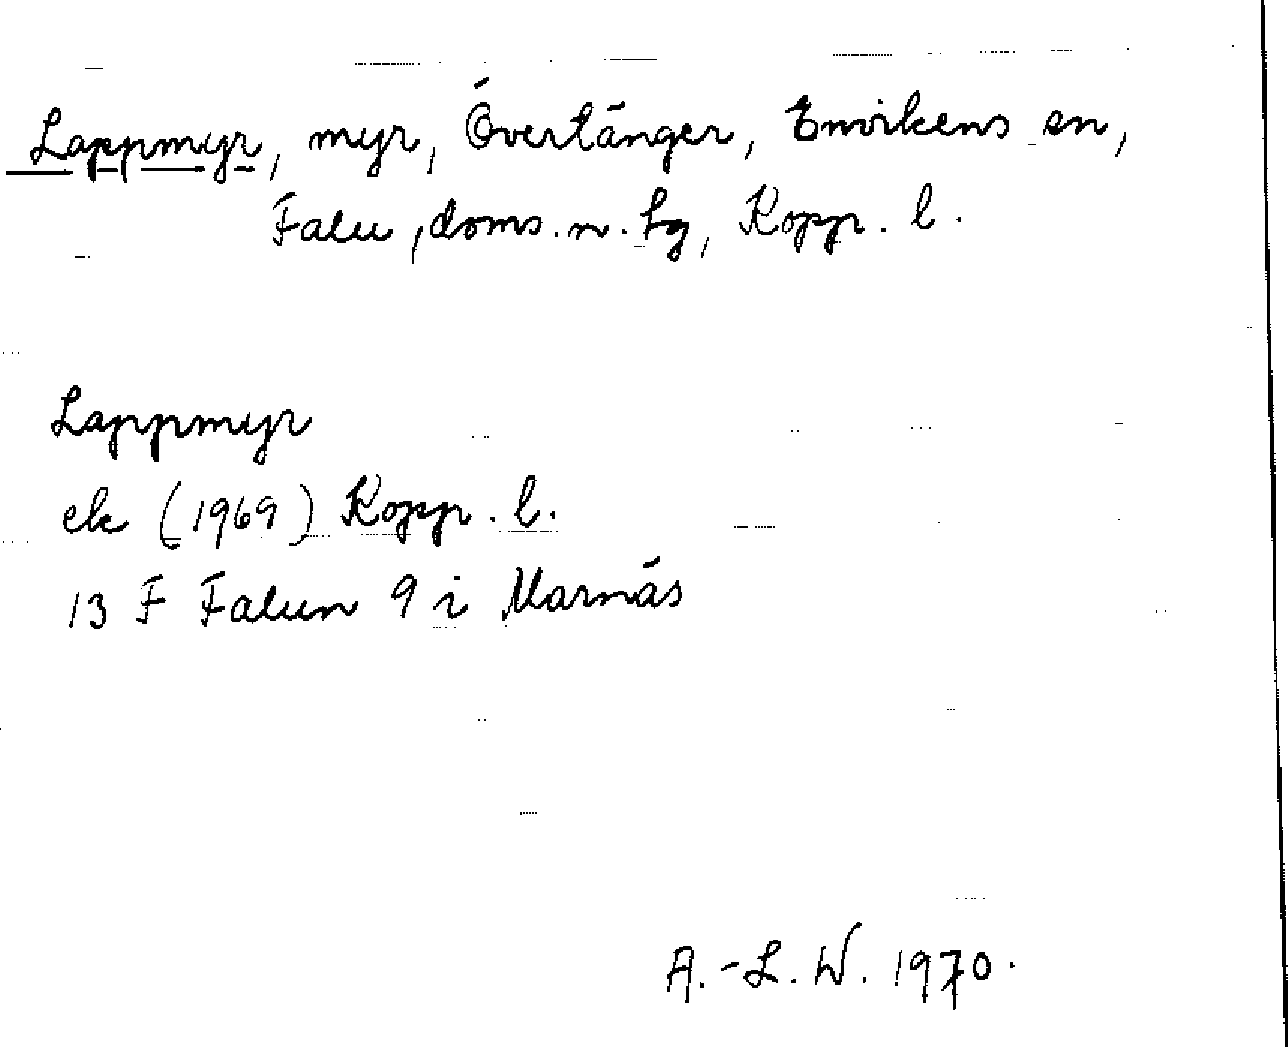 Lappmyr, myr, Övertänger, Envikens sn,
Falu, doms. n. tg, Kopp. l.
Lappmyr
ek (1969) Kopp. l.
13 F Falun 9 i Marnäs
A.-L. W. 1970.